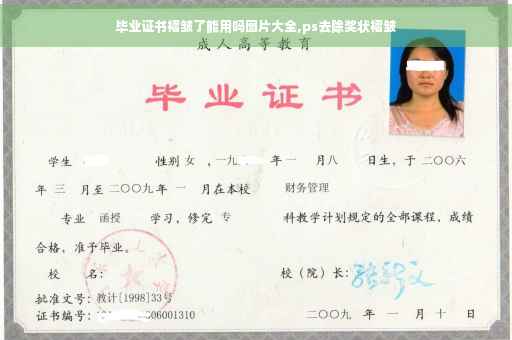 毕业证书褶皱了能用吗图片大全,ps去除奖状褶皱
成人高等教育
毕业证书
学生 性别 女 ,一九 年 一 月八 日生，于二〇〇六
年 三 月至二〇〇九年 一 月在本校 财务管理
专业 函授 学习，修完 专 科教学计划规定的全部课程，成绩
合格，准予毕业。
校 名： 校（院）长：
批准文号：教计[1998]33号
证书编号： 06001310 二〇〇九 年 一 月 十 日